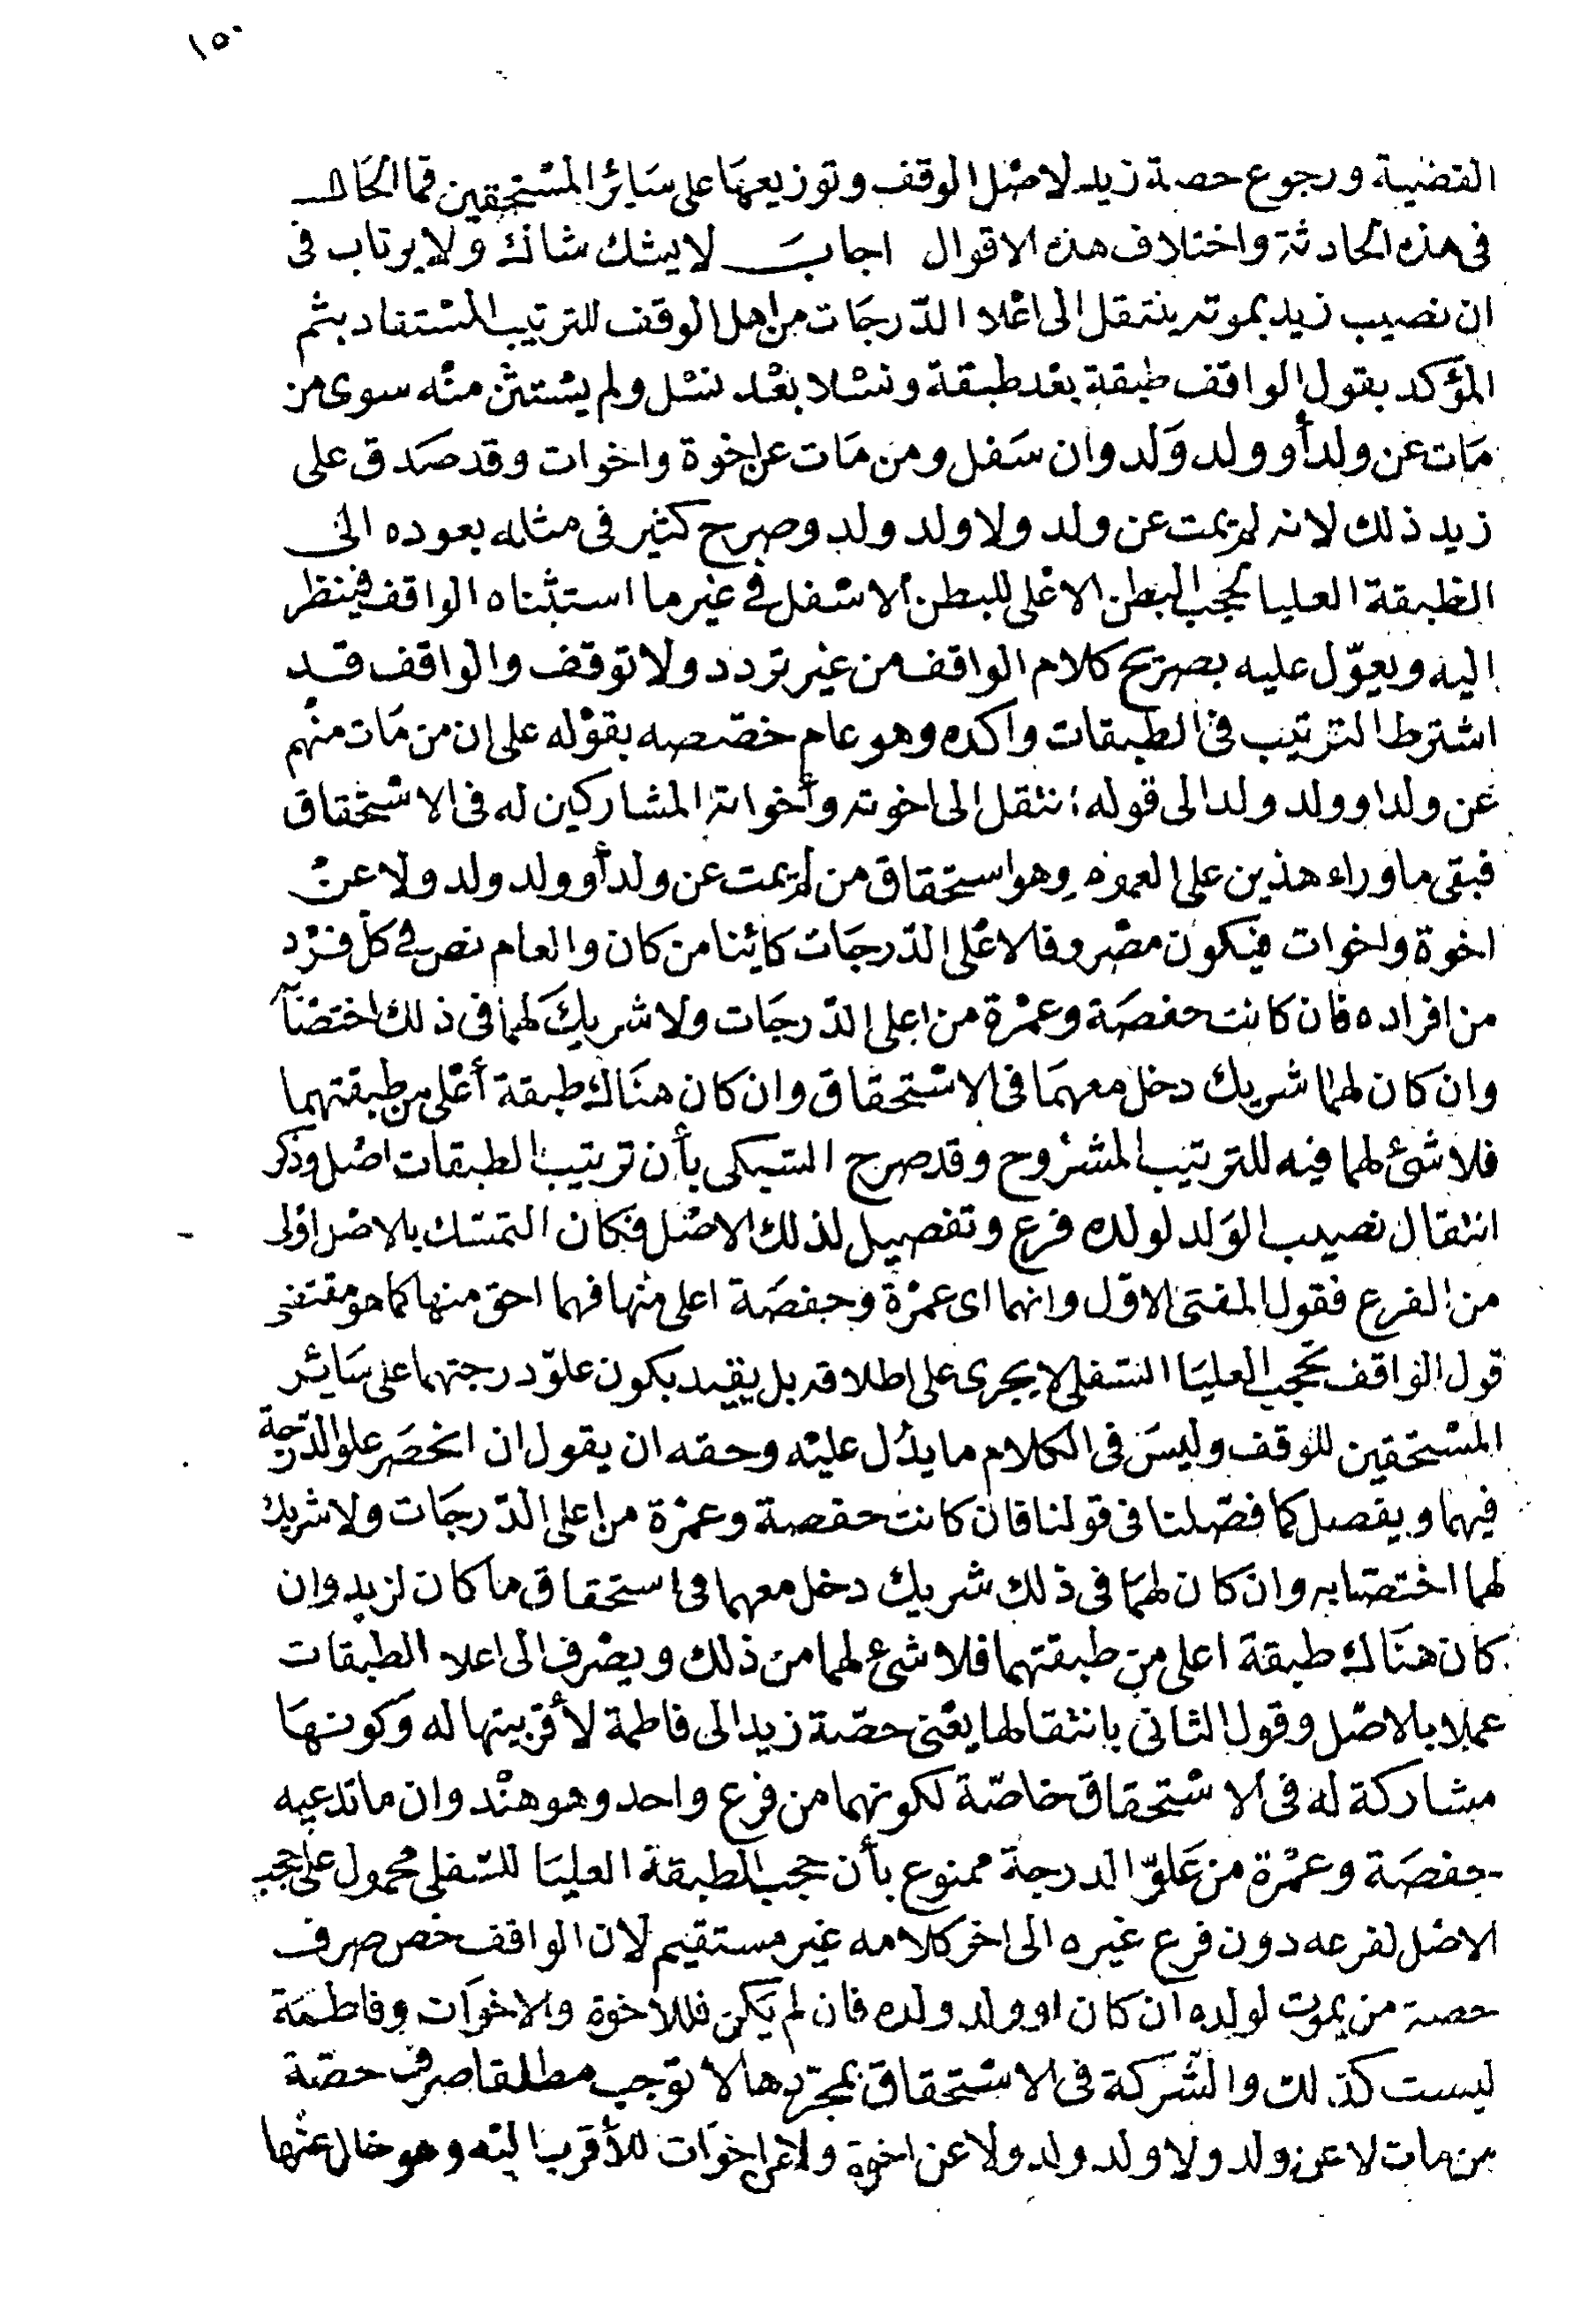 ١٥٠
القضية ورجوع حصة زيد لاصل الوقف وتوزيعها على سائر المستحقين فما الحال
في هذه الحادثة واختلاف هذه الاقوال اجاب لا يشك شاك ولا يرتاب في
ان نصيب زيد بموته ينتقل الى اعلا الدّرجات من اهل الوقف للترتيب المستفاد بثم
المؤكد بقول الواقف طبقة بعد طبقة ونسلا بعد نسل ولم يستثن منه سوى من
مات عن ولد أو ولد ولد وان سفل ومن مات عن اخوة واخوات وقد صدق على
زيد ذلك لانه لم يمت عن ولد ولا ولد ولد وصرح كثير في مثله بعوده الى
الطبقة العليا لحجب البطن الاعلى للبطن الاسفل في غير ما استثناه الواقف فينظر
اليه ويعوّل عليه بصريح كلام الواقف من غير تردد ولا توقف والواقف قد
اشترط الترتيب في الطبقات واكده وهو عام خصّصه بقوله على ان من مات منهم
عن ولد او ولد ولد الى قوله انتقل الى اخوته وأخواته المشاركين له في الاستحقاق
فبقى ما وراء هذين على العموم وهو استحقاق من لم يمت عن ولد أو ولد ولد ولا عن
اخوة واخوات فيكون مصروفا لاعلى الدّرجات كائنا من كان والعام نص في كل فرد
من افراده فان كانت حفصة وعمرة من اعلى الدّرجات ولا شريك لهما في ذلك اختصتا
وان كان لهما شريك دخل معهما في الاستحقاق وان كان هناك طبقة أعلى من طبقتهما
فلا شئ لهما فيه للترتيب المشروح وقد صرح السبكى بأن ترتيب الطبقات اصل وذكر
انتقال نصيب الولد لولده فرع وتفصيل لذلك الاصل فكان التمسك بالاصل اولى
من الفرع فقول المفتى الاوّل وانهما اى عمرة وحفصة اعلى منها فهما احق منها كما هو مقتضى
قول الواقف تحجب العليا السفلى لا يجرى على اطلاقه بل يقيد بكون علوّ درجتهما على سائر
المستحقين للوقف وليس في الكلام ما يدل عليه وحقه ان يقول ان انحصر علو الدّرجة
فيهما ويفصل كما فصّلنا في قولنا فان كانت حفصة وعمرة من اعلى الدّرجات ولا شريك
لهما اختصتا به وان كان لهما في ذلك شريك دخل معهما في استحقاق ما كان لزيد وان
كان هناك طبقة اعلى من طبقتهما فلا شئ لهما من ذلك ويصرف الى اعلا الطبقات
عملا بالاصل وقول الثانى بانتقالها يعنى حصّة زيد الى فاطمة لأقربيتها له وكونها
مشاركة له في الاستحقاق خاصّة لكونهما من فرع واحد وهو هند وان ما تدعيه
حفصة وعمرة من علوّ الدرجة ممنوع بأن حجب الطبقة العليا للسّفلى محمول على حجب
الاصل لفرعه دون فرع غيره الى اخر كلامه غير مستقيم لان الواقف خص صرف
حصة من يموت لولده ان كان او ولد ولده فان لم يكن فللاخوة والاخوات وفاطمة
ليست كذلك والشركة في الاستحقاق بمجرّدها لا توجب مطلقا صرف حصّة
من مات لا عن ولد ولا ولد ولد ولا عن اخوة ولا عن اخوات للأقرب اليه وهو خال عنها